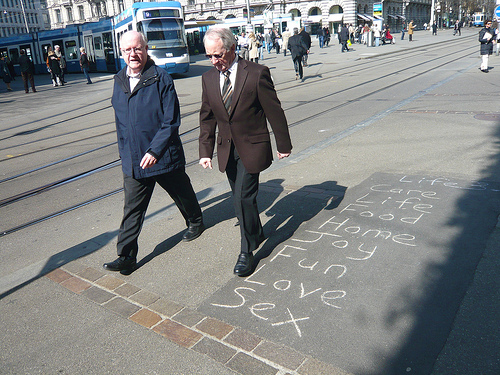 Life
Care
Life
Food
Home
Joy
Fun
Love
Sex